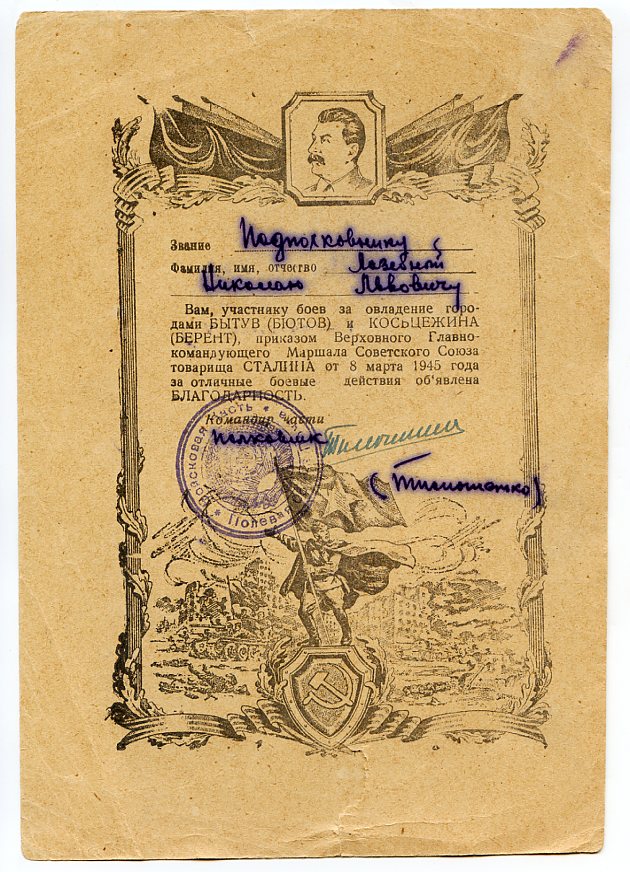 Звание Подполковнику
Фамилия, имя, отчество Лазебной
Николаю Львовичу
Вам, участнику боев за овладение горо-
дами БЫТУВ (БЮТОВ) и КОСЬЦЕЖИНА
(БЕРЕНТ), приказом Верховного Главно-
командующего Маршала Советского Союза
товарища СТАЛИНА от 8 марта 1945 года
за отличные боевые действия об'явлена
БЛАГОДАРНОСТЬ.
Командир части
полковник
(Тимошенко)
Полевая